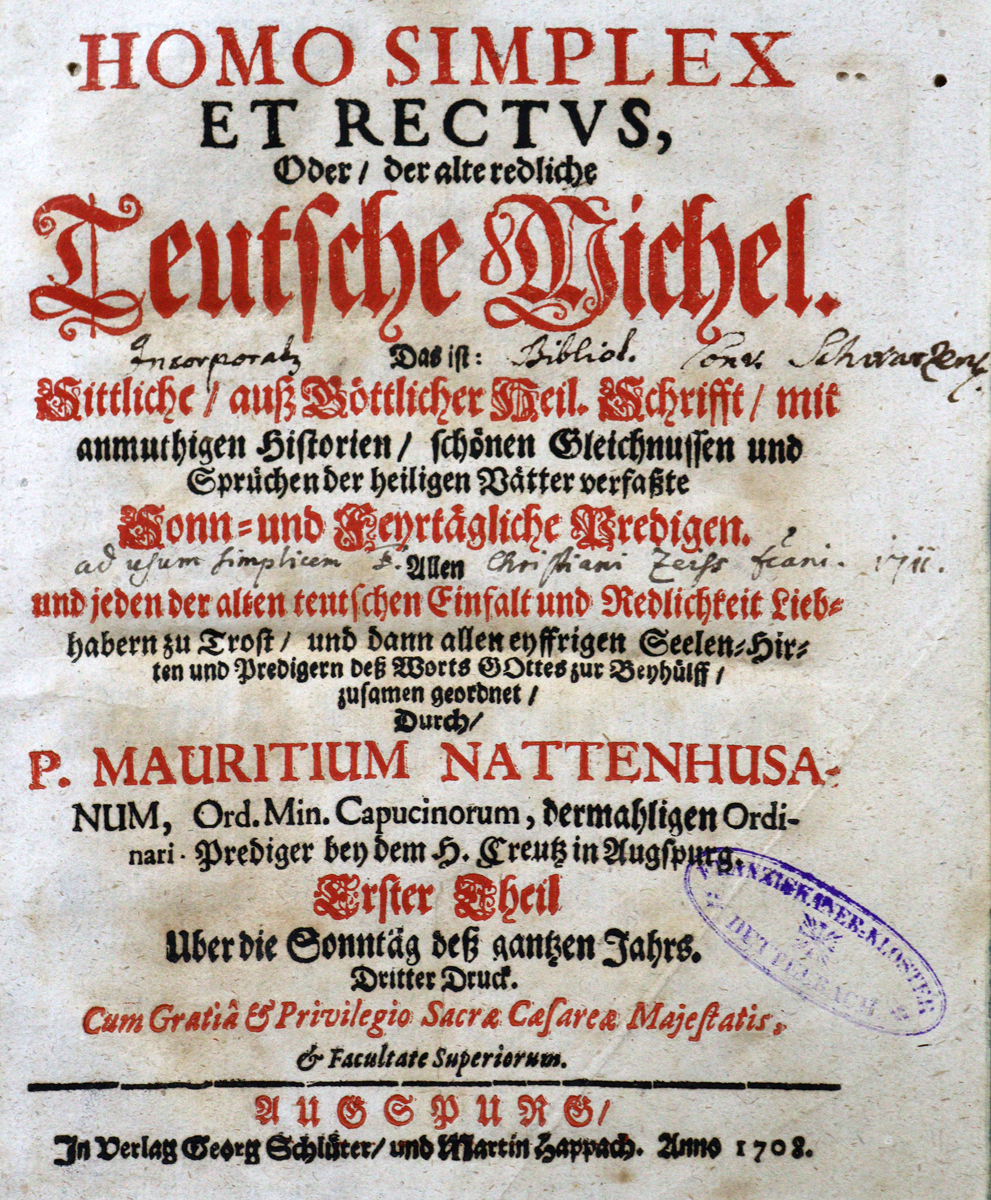 HOMO SIMPLEX
ET RECTVS,
Oder / der alte redliche
Teutsche Michel.
Das ist:
Incorporat9 Bibliot. Conv. Schwarzens.
Sittliche / auß Göttlicher Heil. Schrifft / mit
anmuthigen Historien / schönen Gleichnussen und
Sprüchen der heiligen Vätter verfaßte
Sonn- und Feyrtägliche Predigen.
ad usum simplicem Christiani 1711.
Allen
und jeden der alten teutschen Einfalt und Redlichkeit Lieb-
habern zu Trost / und dann allen eyffrigen Seelen-Hir-
ten und Predigern deß Worts GOttes zur Beyhülff /
zusamen geordnet /
Durch /
P. MAURITIUM NATTENHUSA-
NUM, Ord. Min. Capucinorum, dermahligen Ordi-
nari-Prediger bey dem H. Creutz in Augspurg.
Erster Theil
Uber die Sonntäg deß gantzen Jahrs.
Dritter Druck.
Cum Gratiâ & Privilegio Sacræ Cæsareæ Majestatis,
& Facultate Superiorum.
AUGSPURG /
In Verlag Georg Schlüter / und Martin Happach. Anno 1708.
FRANZISKANER-KLOSTER
DETTELBACH